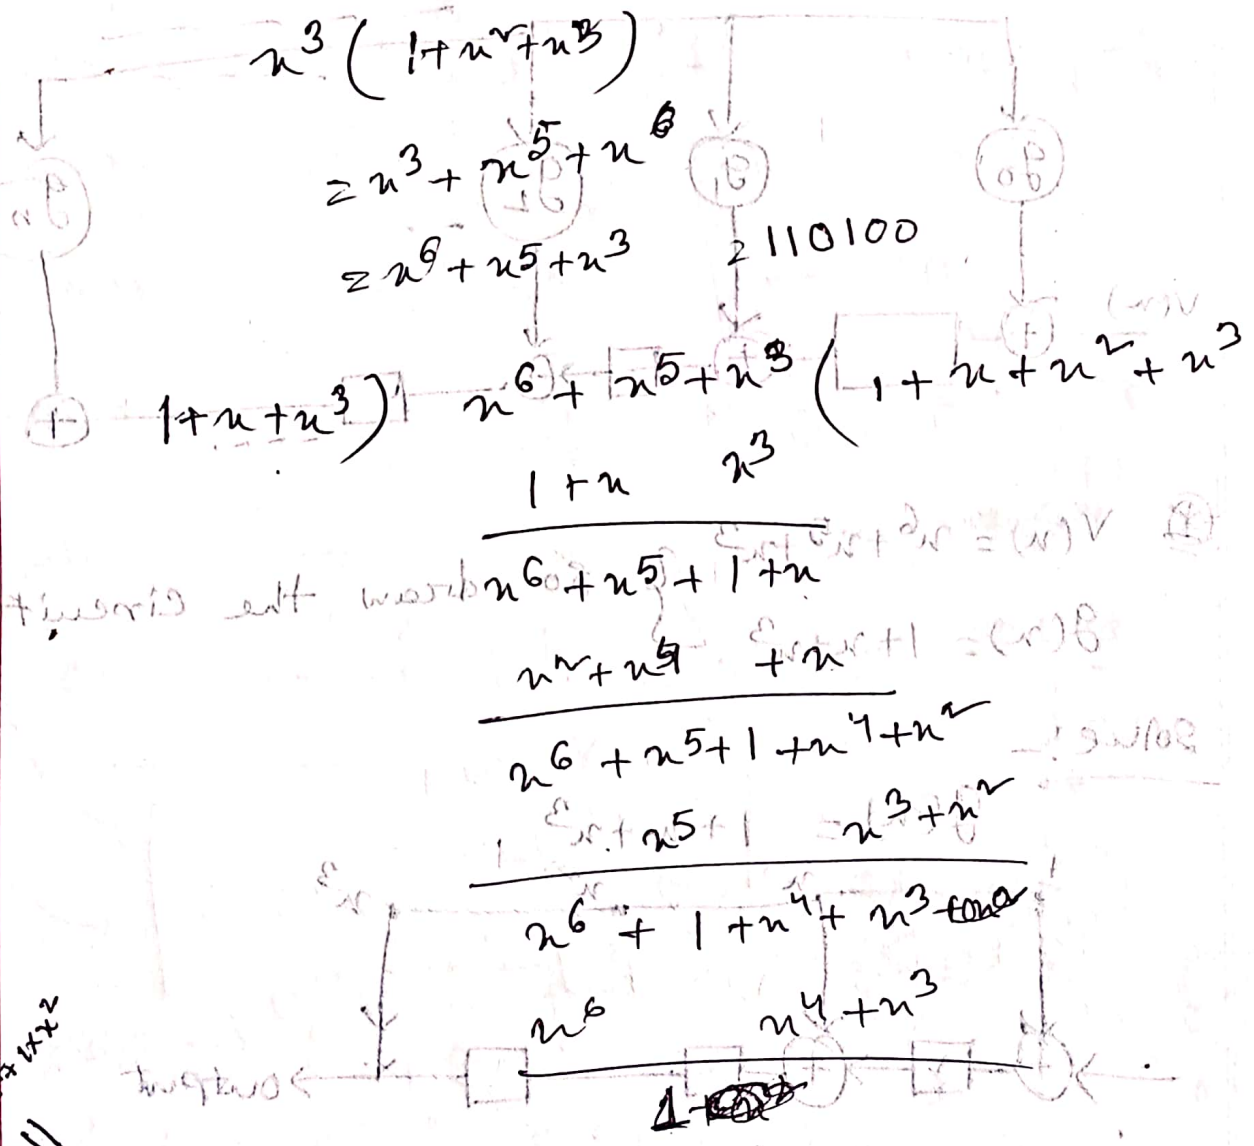 x³ ( 1+x²+x³ )
= x³ + x⁵ + x⁶
= x⁶ + x⁵ + x³ = 110100
1+x+x³ ) x⁶ + x⁵ + x³ ( 1 + x + x² + x³
1 + x x³
x⁶ + x⁵ + 1 + x
x² + x⁴ + x
x⁶ + x⁵ + 1 + x⁴ + x²
x⁵ x³ + x²
x⁶ + 1 + x⁴ + x³
x⁶ x⁴ + x³
1